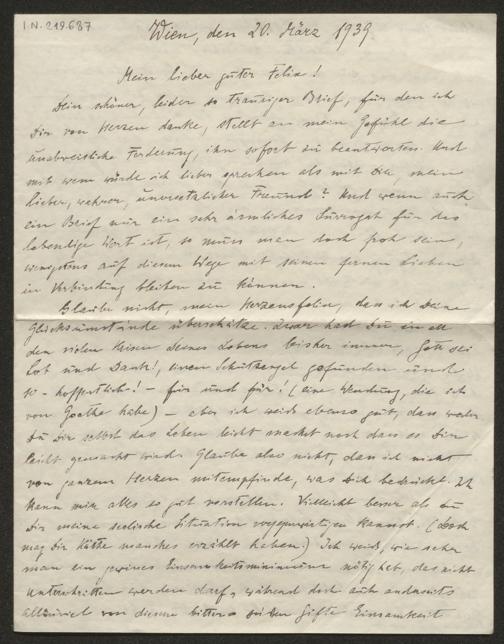 I.N. 219.687
Wien, den 20. März 1939
Mein lieber guter Felix!
Dein schöner, leider so trauriger Brief, für den ich
Dir von Herzen danke, stellt an mein Gefühl die
unabweisliche Forderung, ihn sofort zu beantworten. Und
mit wem würde ich lieber sprechen als mit Dir, mein
lieber, wahrer, unersetzlicher Freund? Und wenn auch
ein Brief nur ein sehr ärmliches Surrogat für das
lebendige Wort ist, so muss man doch froh sein,
wenigstens auf diesem Wege mit seinen fernen Lieben
in Verbindung bleiben zu können.
Glaube nicht, mein Herzensfelix, dass ich Deine
Glücksumstände überschätze. Zwar hast Du in all
den vielen Krisen Deines Lebens bisher immer, Gott sei
Lob und Dank!, einen Schutzengel gefunden und
so - hoffentlich! - für und für! (eine Wendung, die ich
von Goethe habe) - aber ich weiss ebenso gut, dass weder
Du Dir selbst das Leben leicht machst noch dass es Dir
leicht gemacht wird. Glaube also nicht, dass ich nicht
von ganzem Herzen mitempfinde, was Dich bedrückt. Ich
kann mir alles so gut vorstellen. Vielleicht besser als Du
Dir meine seelische Situation vergegenwärtigen kannst. (Doch
mag Dir Käthe manches erzählt haben.) Ich weiss, wie sehr
man ein gewisses Einsamkeitsminimum nötig hat, das nicht
unterschritten werden darf, während doch auch andrerseits
allzuviel von diesem bitter- Gifte Einsamkeit